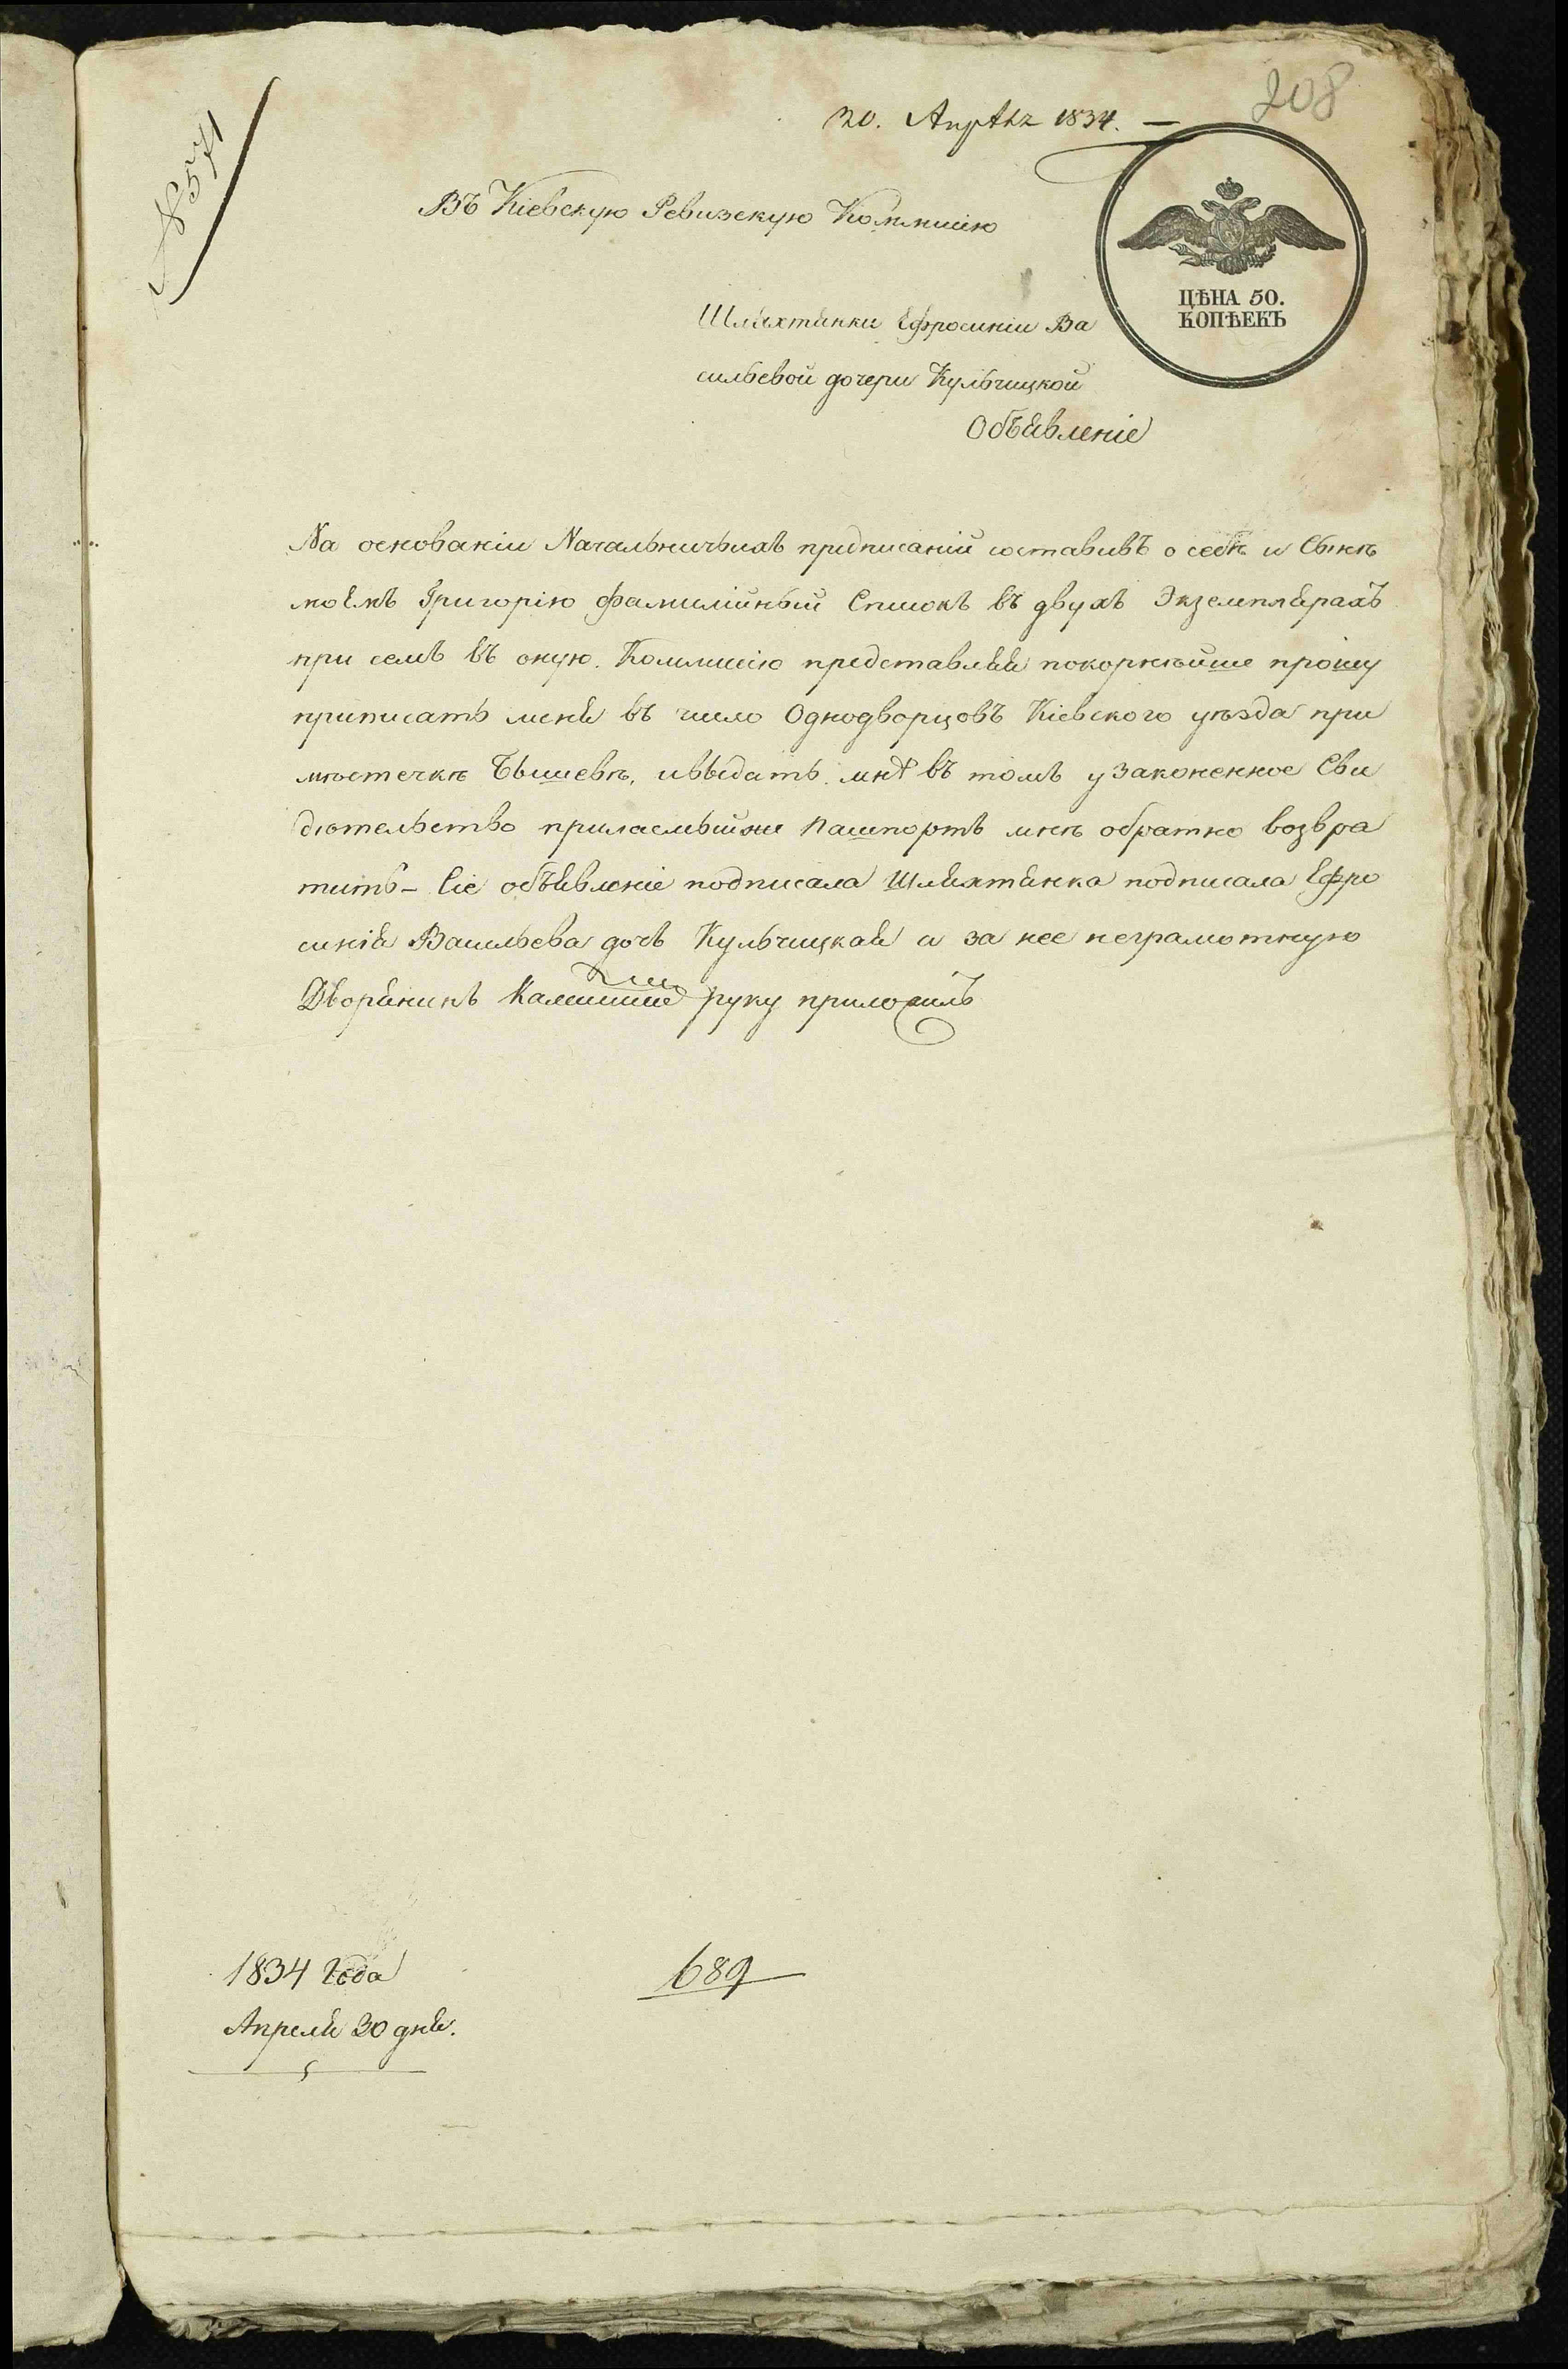 208
30. Апрѣля 1834. —
№ 8571
Въ Кіевскую Ревизскую Коммисію
ЦѢНА 50.
КОПѢЕКЪ
Шляхтянки Ефросиніи Ва
сильевой дочери Кульчицкой
Объявленіе
На основаніи Начальничьихъ предписаній составивъ о себѣ и Сынѣ
моемъ Григорію фамилійный Списокъ въ двухъ Экземплярахъ
при семъ въ оную Коммисію представляя покорнѣйше прошу
приписать меня въ число Однодворцовъ Кіевского уѣзда при
мѣстечкѣ Бышевѣ, ивыдать мнѣ въ томъ узаконенное Сви
дѣтельство прилаемыйже Пашпортъ мнѣ обратно возвра
тить – Сіе объявленіе подписала Шляхтянка подписала Ефро
синія Васильева дочь Кульчицкая а за нее неграмотную
Дворянинъ руку приложилъ
1834 Года
Апреля 30 дня.
689